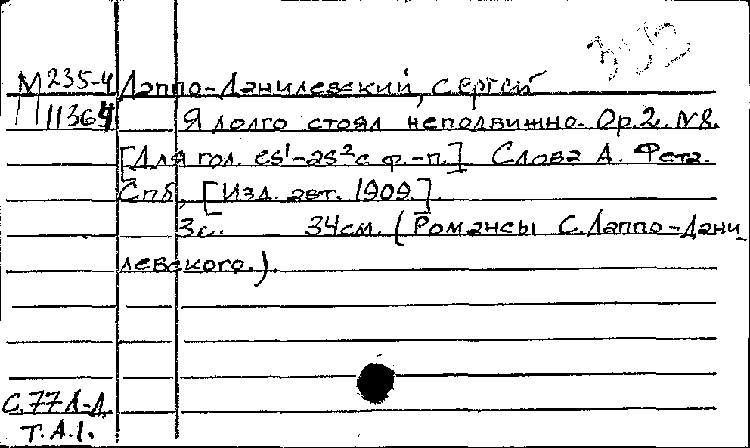 М 235-4 Лаппо-Данилевский, Сергей
11364 Я долго стоял неподвижно. Op. 2. №8.
[Для гол. es¹-as² с ф.-п.] Слова А. Фета.
Спб, [Изд. авт. 1909.].
3с. 34см. (Романсы С. Лаппо-Дани
левского.).
С. 77 Л-Д.
Т. А. 1.